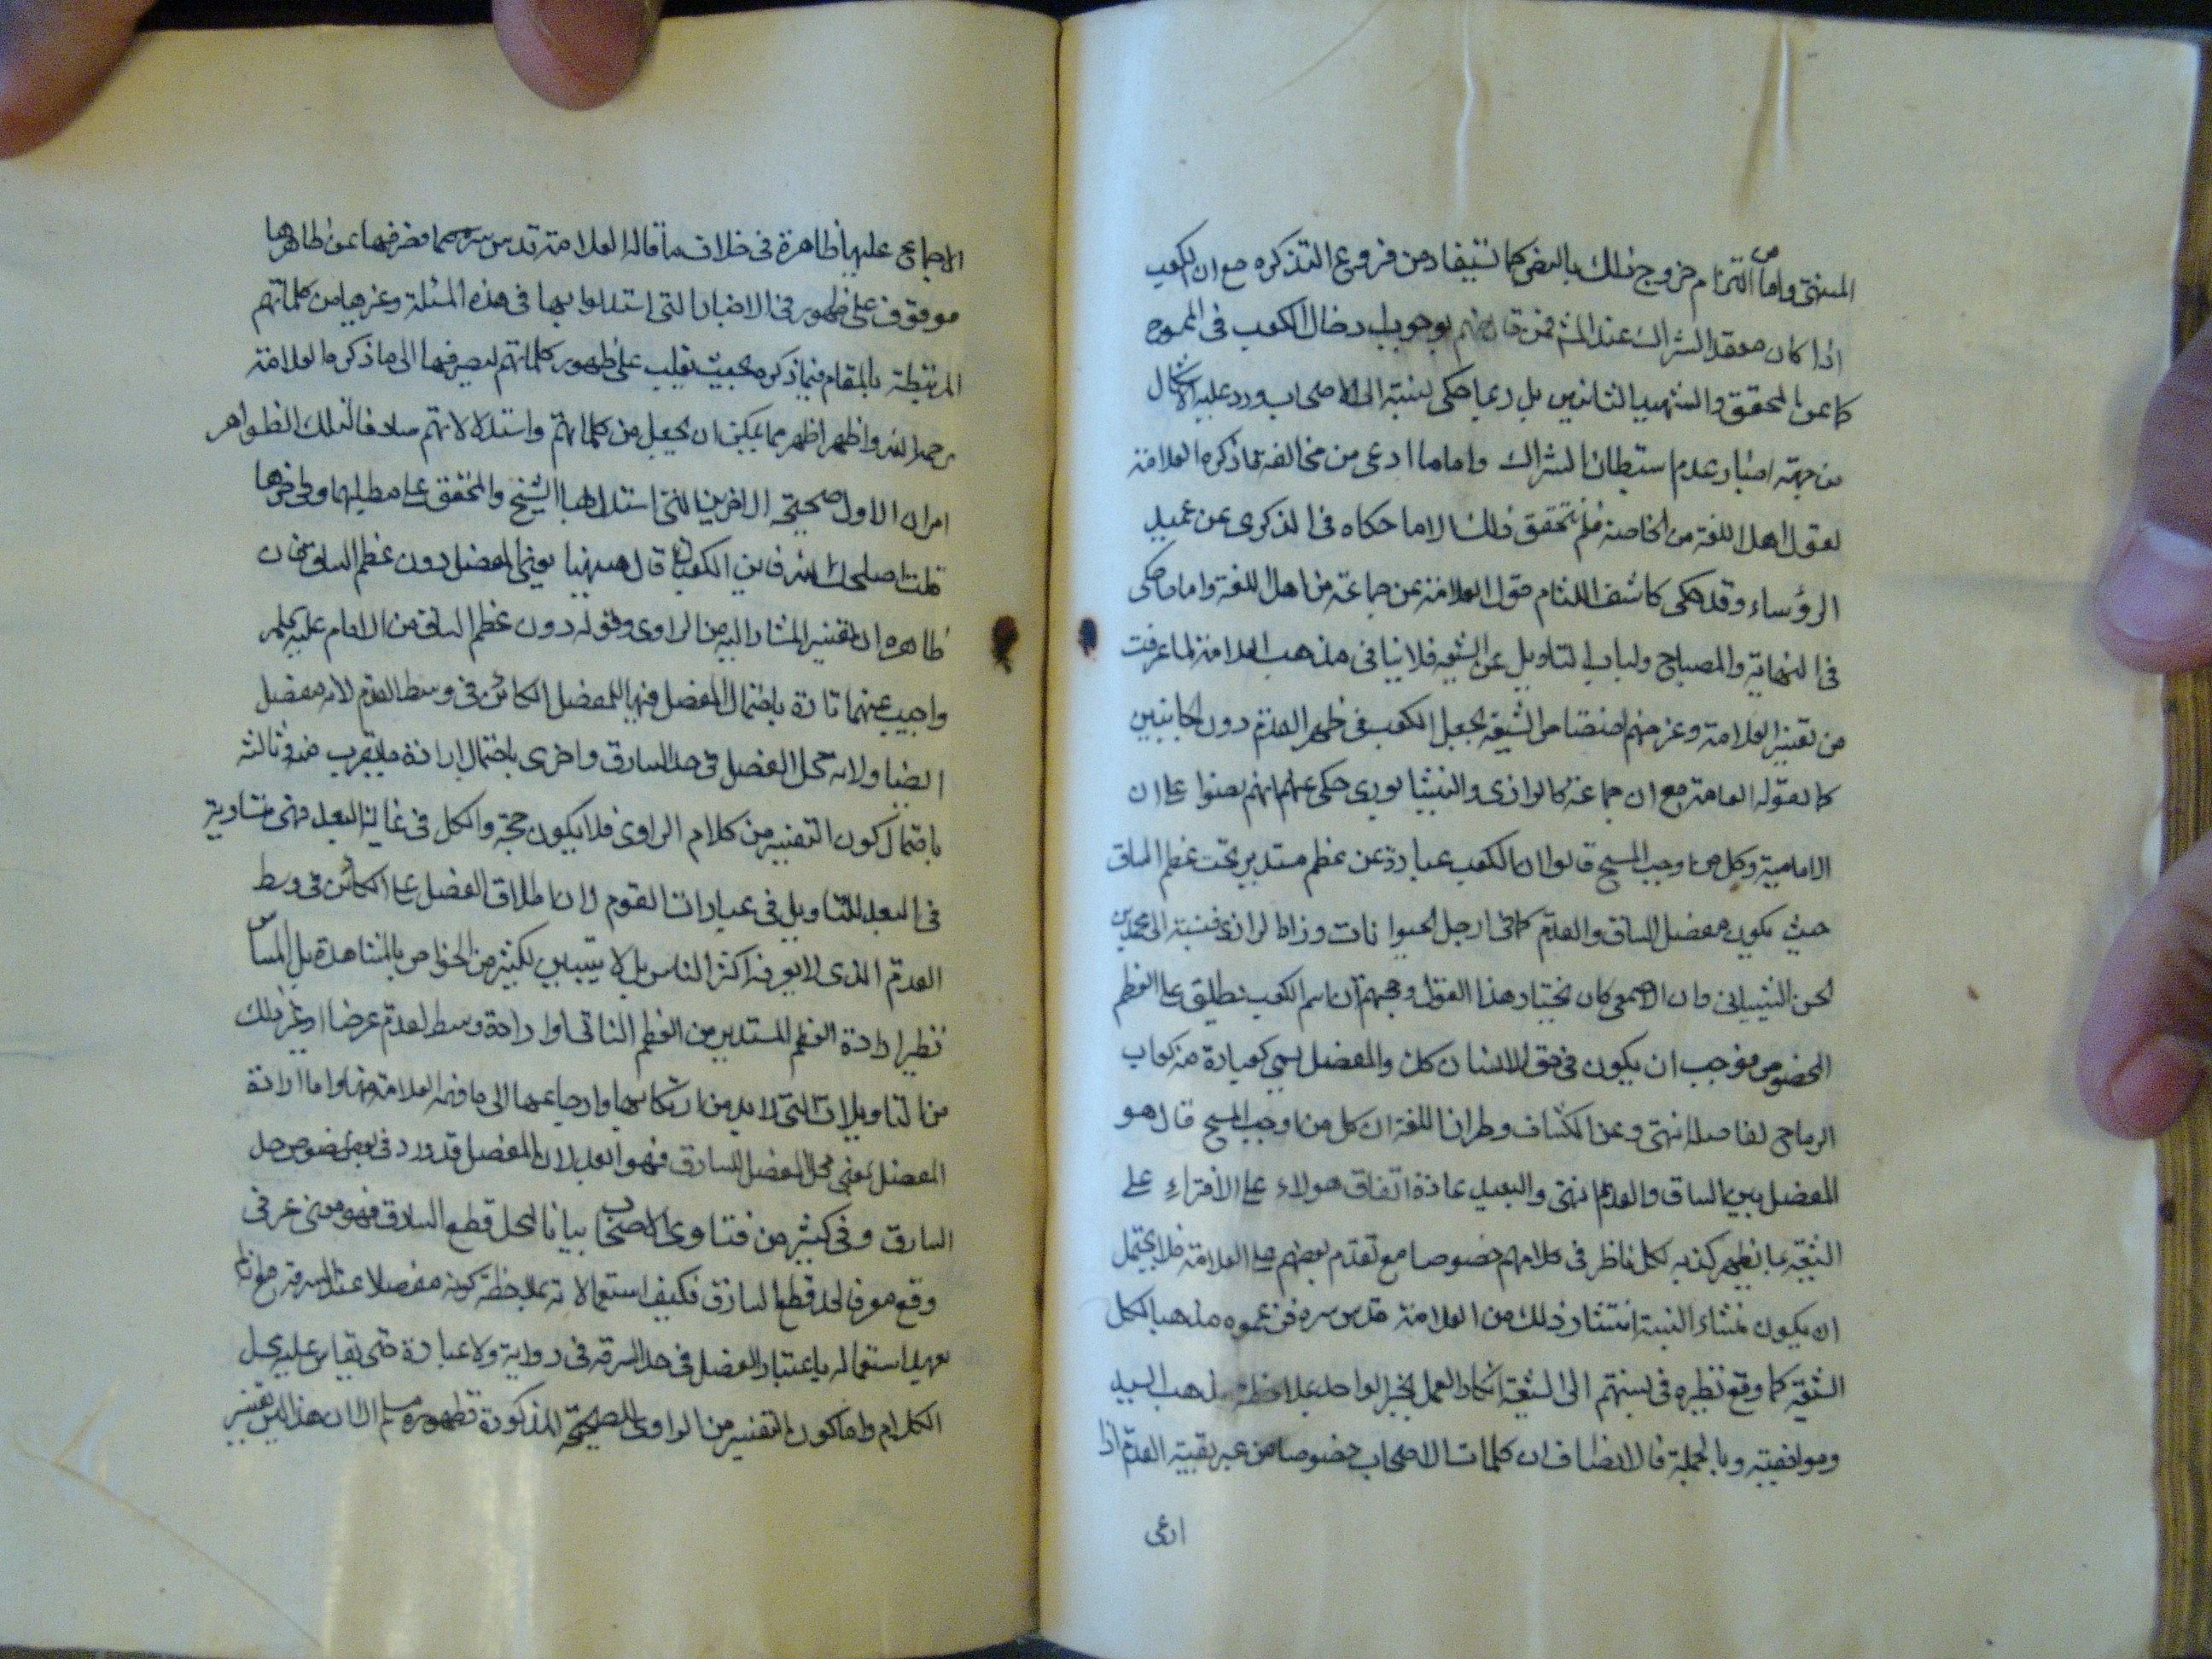 المنتهى واما التزام خروج ذلك بالنص كما تستفاد من فروع التذكره مع ان الكعب
اذا كان معقد الشراك عند المشهور فمن قال منهم بوجوب ادخال الكعب في الممسوح
كما عن المحقق والشهيد الثانيين بل ربما حكى نسبته الى الاصحاب ورد عليه الاشكال
من جهته اخبار عدم استبطان الشراك واما ما ادعى من مخالفة ما ذكره العلامة
لقول اهل اللغة من الخاصة فلم يتحقق ذلك الا ما حكاه في الذكرى عن عميد
الرؤساء وقد حكى كاشف اللثام قول العلامة عن جماعة من اهل اللغة واما ما حكى
في النهاية والمصباح ولباب التاويل عن الشيعة فلا ينافي مذهب العلامة لما عرفت
من تفسير العلامة وغيره منهم اختصاص الشيعة بجعل الكعب في ظهر القدم دون الجانبين
كما يقوله العامة مع ان جماعة كالرازى والنيشابورى حكى عنهم انهم نصوا على ان
الامامية وكل من اوجب المسح قالوا ان الكعب عبارة عن عظم مستدير تحت عظم الساق
حيث يكون مفصل الساق والقدم كما في ارجل الحيوانات وزاد الرازى فنسبه الى محمد بن
الحسن الشيباني وان الاصمعي كان يختار هذا القول وحجتهم ان اسم الكعب يطلق على العظم
المخصوص فوجب ان يكون في حق الانسان كذلك والمفصل يسمى كعبا ومنه كعاب
الرماح لمفاصله انتهى وعن الكشاف وطراز اللغة ان كل من اوجب المسح قال هو
المفصل بين الساق والقدم انتهى والبعيد عادة اتفاق هولاء على الافتراء على
الشيعة بما يظهر كذبه لكل ناظر في كلامهم خصوصا مع تقدم بعضهم على العلامة فلا يحتمل
ان يكون منشاء النسبة انتشار ذلك من العلامة قدس سره فزعموه مذهبا لكل
الشيعة كما وقع نظيره في نسبتهم الى الشيعة انكار العمل بخبر الواحد بملاحظة مذهب السيد
وموافقيه وبالجملة فالانصاف ان كلمات الاصحاب خصوصا من عبر بقبة القدم اذا
ادعى
الاجماع عليها ظاهرة في خلاف ما قاله العلامة قدس سره مما فصرفها عن ظاهرها
موقوف على ظهور في الاخبار التي استدلوا بها في هذه المسئلة وغيرها من كلماتهم
المرتبطة بالمقام فيما ذكره بحيث يغلب على ظهور كلماتهم ليصرفها الى ما ذكره العلامة
رحمه الله واظهر اظهر مما يمكن ان يجعل من كلماتهم واستدلالاتهم صارفا لتلك الظواهر
امران الاول صحيحة الاخوين التي استدل بها الشيخ والمحقق على مطلبهما وفي اخرها
قلت اصلحك الله فاين الكعبان قال هيهنا يعني المفصل دون عظم الساق فان
ظاهره ان التفسير المشار اليه من الراوى وقوله دون عظم الساق من الامام عليه السلام
واجيب عنهما تارة باحتمال المفصل فيها للمفصل الكائن في وسط القدم لانه مفصل
ايضا ولانه محل الفصل في حد السارق واخرى باحتمال ارادة ما يقرب منه وثالثة
باحتمال كون التفسير من كلام الراوى فلا يكون حجة والكل في غاية البعد فهى متساوية
في البعد للتاويل في عبارات القوم لان اطلاق المفصل على الكائن في وسط
القدم الذى لا يعرفه اكثر الناس بل لا يتبين لكثير من الخواص بالمشاهدة بل المساس
نظير ارادة العظم المستدير من العظم الناتى او ارادة وسط القدم عرضا او غير ذلك
من التاويلات التي لا بد من ارتكابها وارجاعها الى ما فهمه العلامة منها واما ارادة
المفصل بمعنى محل المفصل للسارق فهو ابعد لان المفصل قد ورد في بعض نصوص حد
السارق وفي كثير من فتاوى الاصحاب بيانا لمحل قطع السارق فهو معنى عرفى
وقع معرفا لحد قطع السارق فكيف استعمالاته بملاحظة كونه مفصلا عند السرقة مع انه لم
يعهد استعماله باعتبار الفصل في حد السرقة في رواية ولا عبارة حتى يقاس عليه محل
الكلام واما كون التفسير من الراوى للصحيحة المذكورة فظهوره مسلم الا ان هذا ليس تفسير